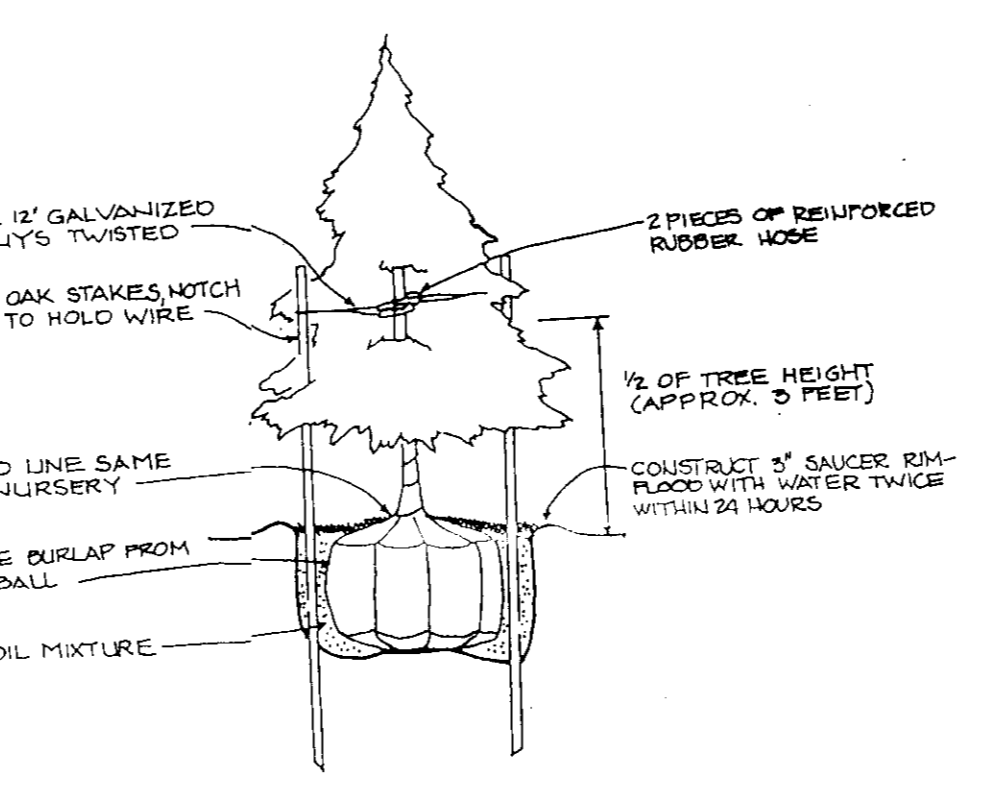 12' GALVANIZED
UYS TWISTED
OAK STAKES, NOTCH
TO HOLD WIRE
D LINE SAME
NURSERY
E BURLAP FROM
BALL
OIL MIXTURE
2 PIECES OF REINFORCED
RUBBER HOSE
1/2 OF TREE HEIGHT
(APPROX. 3 FEET)
CONSTRUCT 3" SAUCER RIM-
FLOOD WITH WATER TWICE
WITHIN 24 HOURS